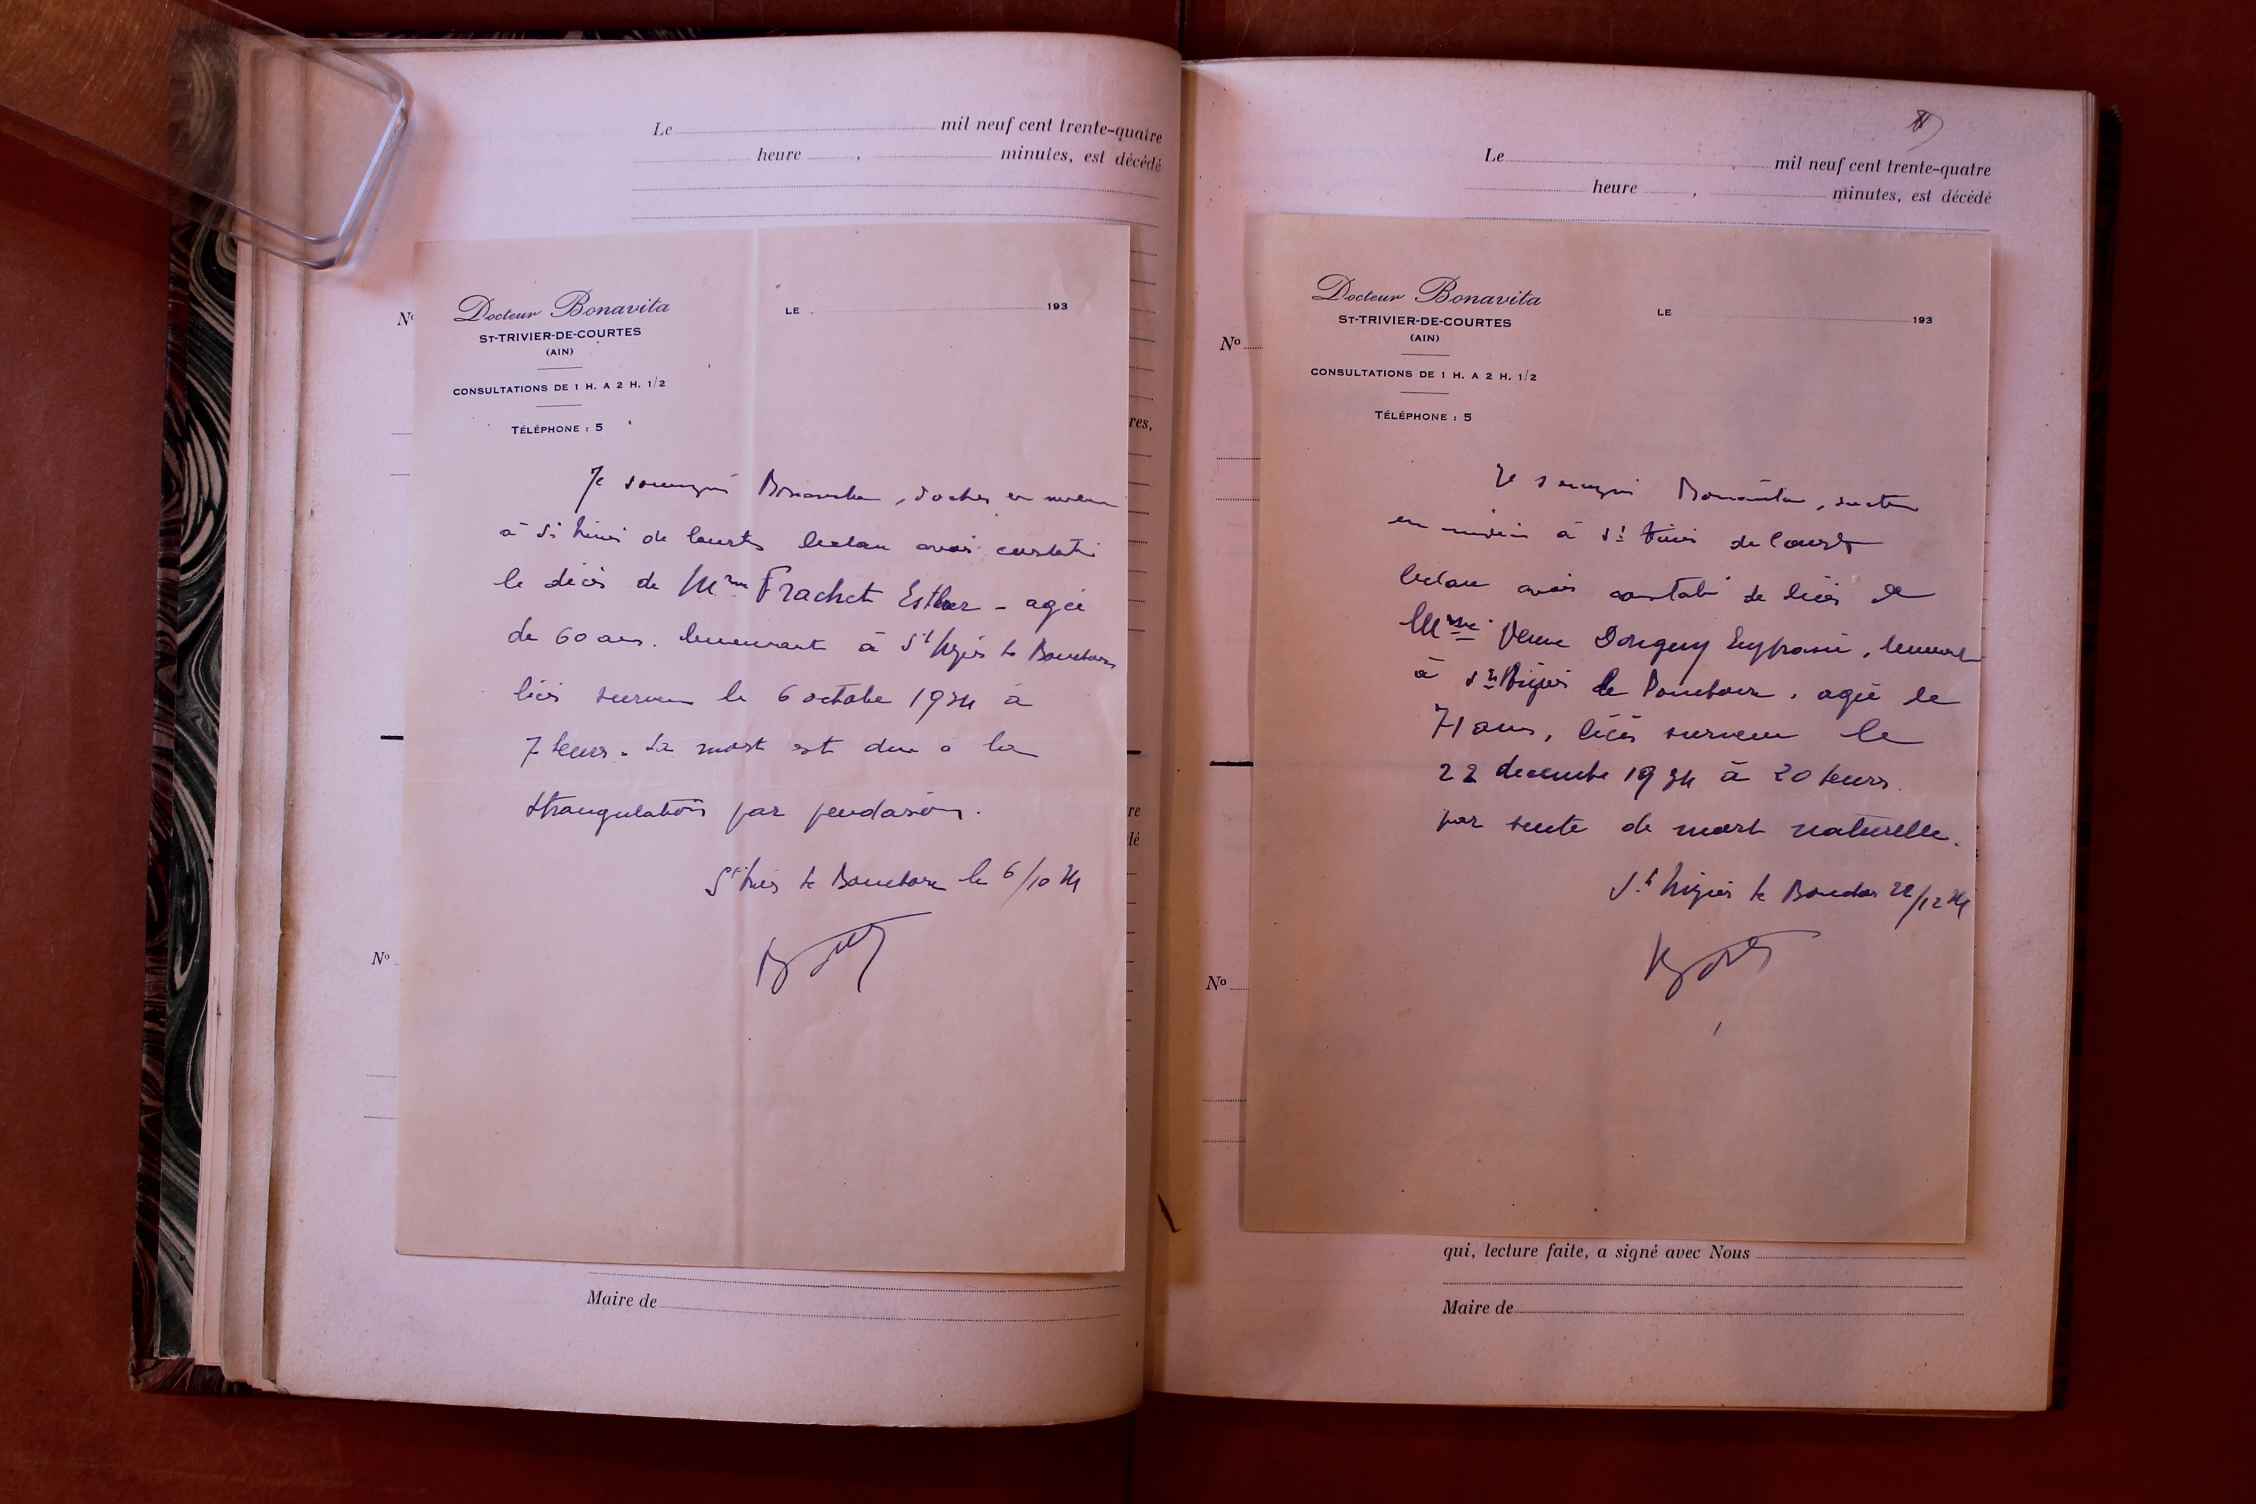 Le mil neuf cent trente-quatre
heure , minutes, est décédé
Nº
Docteur Bonavita
ST-TRIVIER-DE-COURTES
(AIN)
CONSULTATIONS DE 1 H. A 2 H. 1/2
TÉLÉPHONE : 5
LE 193
res,
Je soussigné Bonavita, docteur en médecin
à St Trivier de Courtes declare avoir constaté
le décès de Mme Frachet Esther - agée
de 60 ans. demeurant à St Nizier le Bouchoux
décès survenu le 6 octobre 1934 à
7 heures. La mort est due à la
strangulation par pendaison.
St Nizier le Bouchoux le 6/10 34
re
dé
Nº
Maire de
Le mil neuf cent trente-quatre
heure , minutes, est décédé
Nº
Docteur Bonavita
ST-TRIVIER-DE-COURTES
(AIN)
CONSULTATIONS DE 1 H. A 2 H. 1/2
TÉLÉPHONE : 5
LE 193
Je soussigné Bonavita, docteur
en médecin à St Trivier de Courtes
declare avoir constaté le décès de
Mme Veuve Donguy, demeurant
à St Nizier le Bouchoux, agée de
71 ans, décès survenu le
22 decembre 1934 à 20 heures
par suite de mort naturelle.
St Nizier le Bouchoux 22/12 34
Nº
qui, lecture faite, a signé avec Nous
Maire de